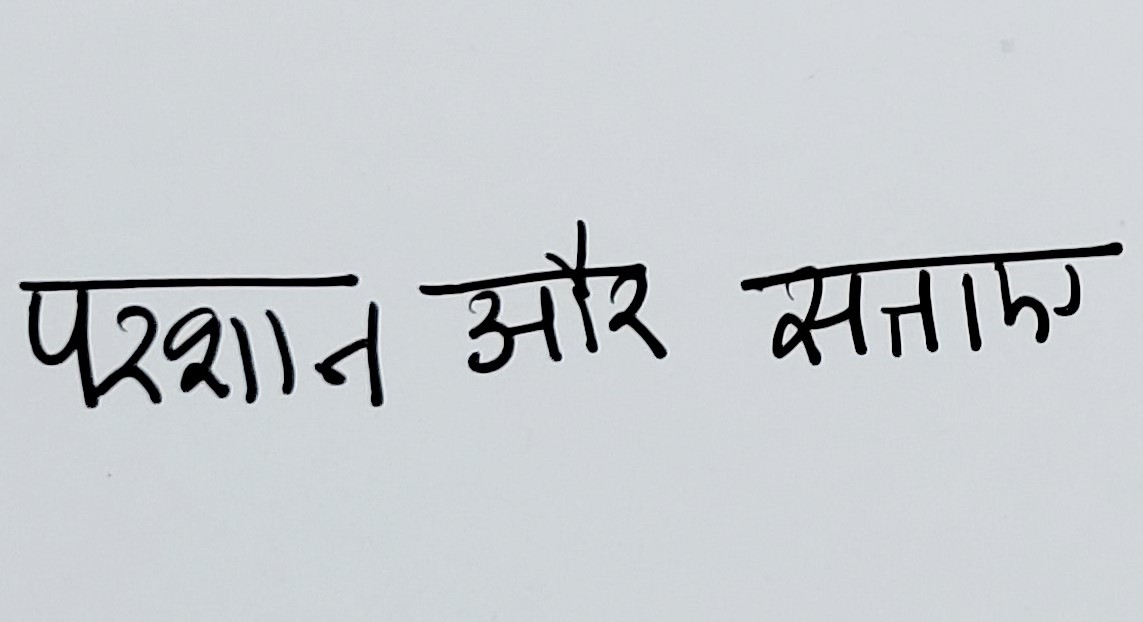 परशान और सताए